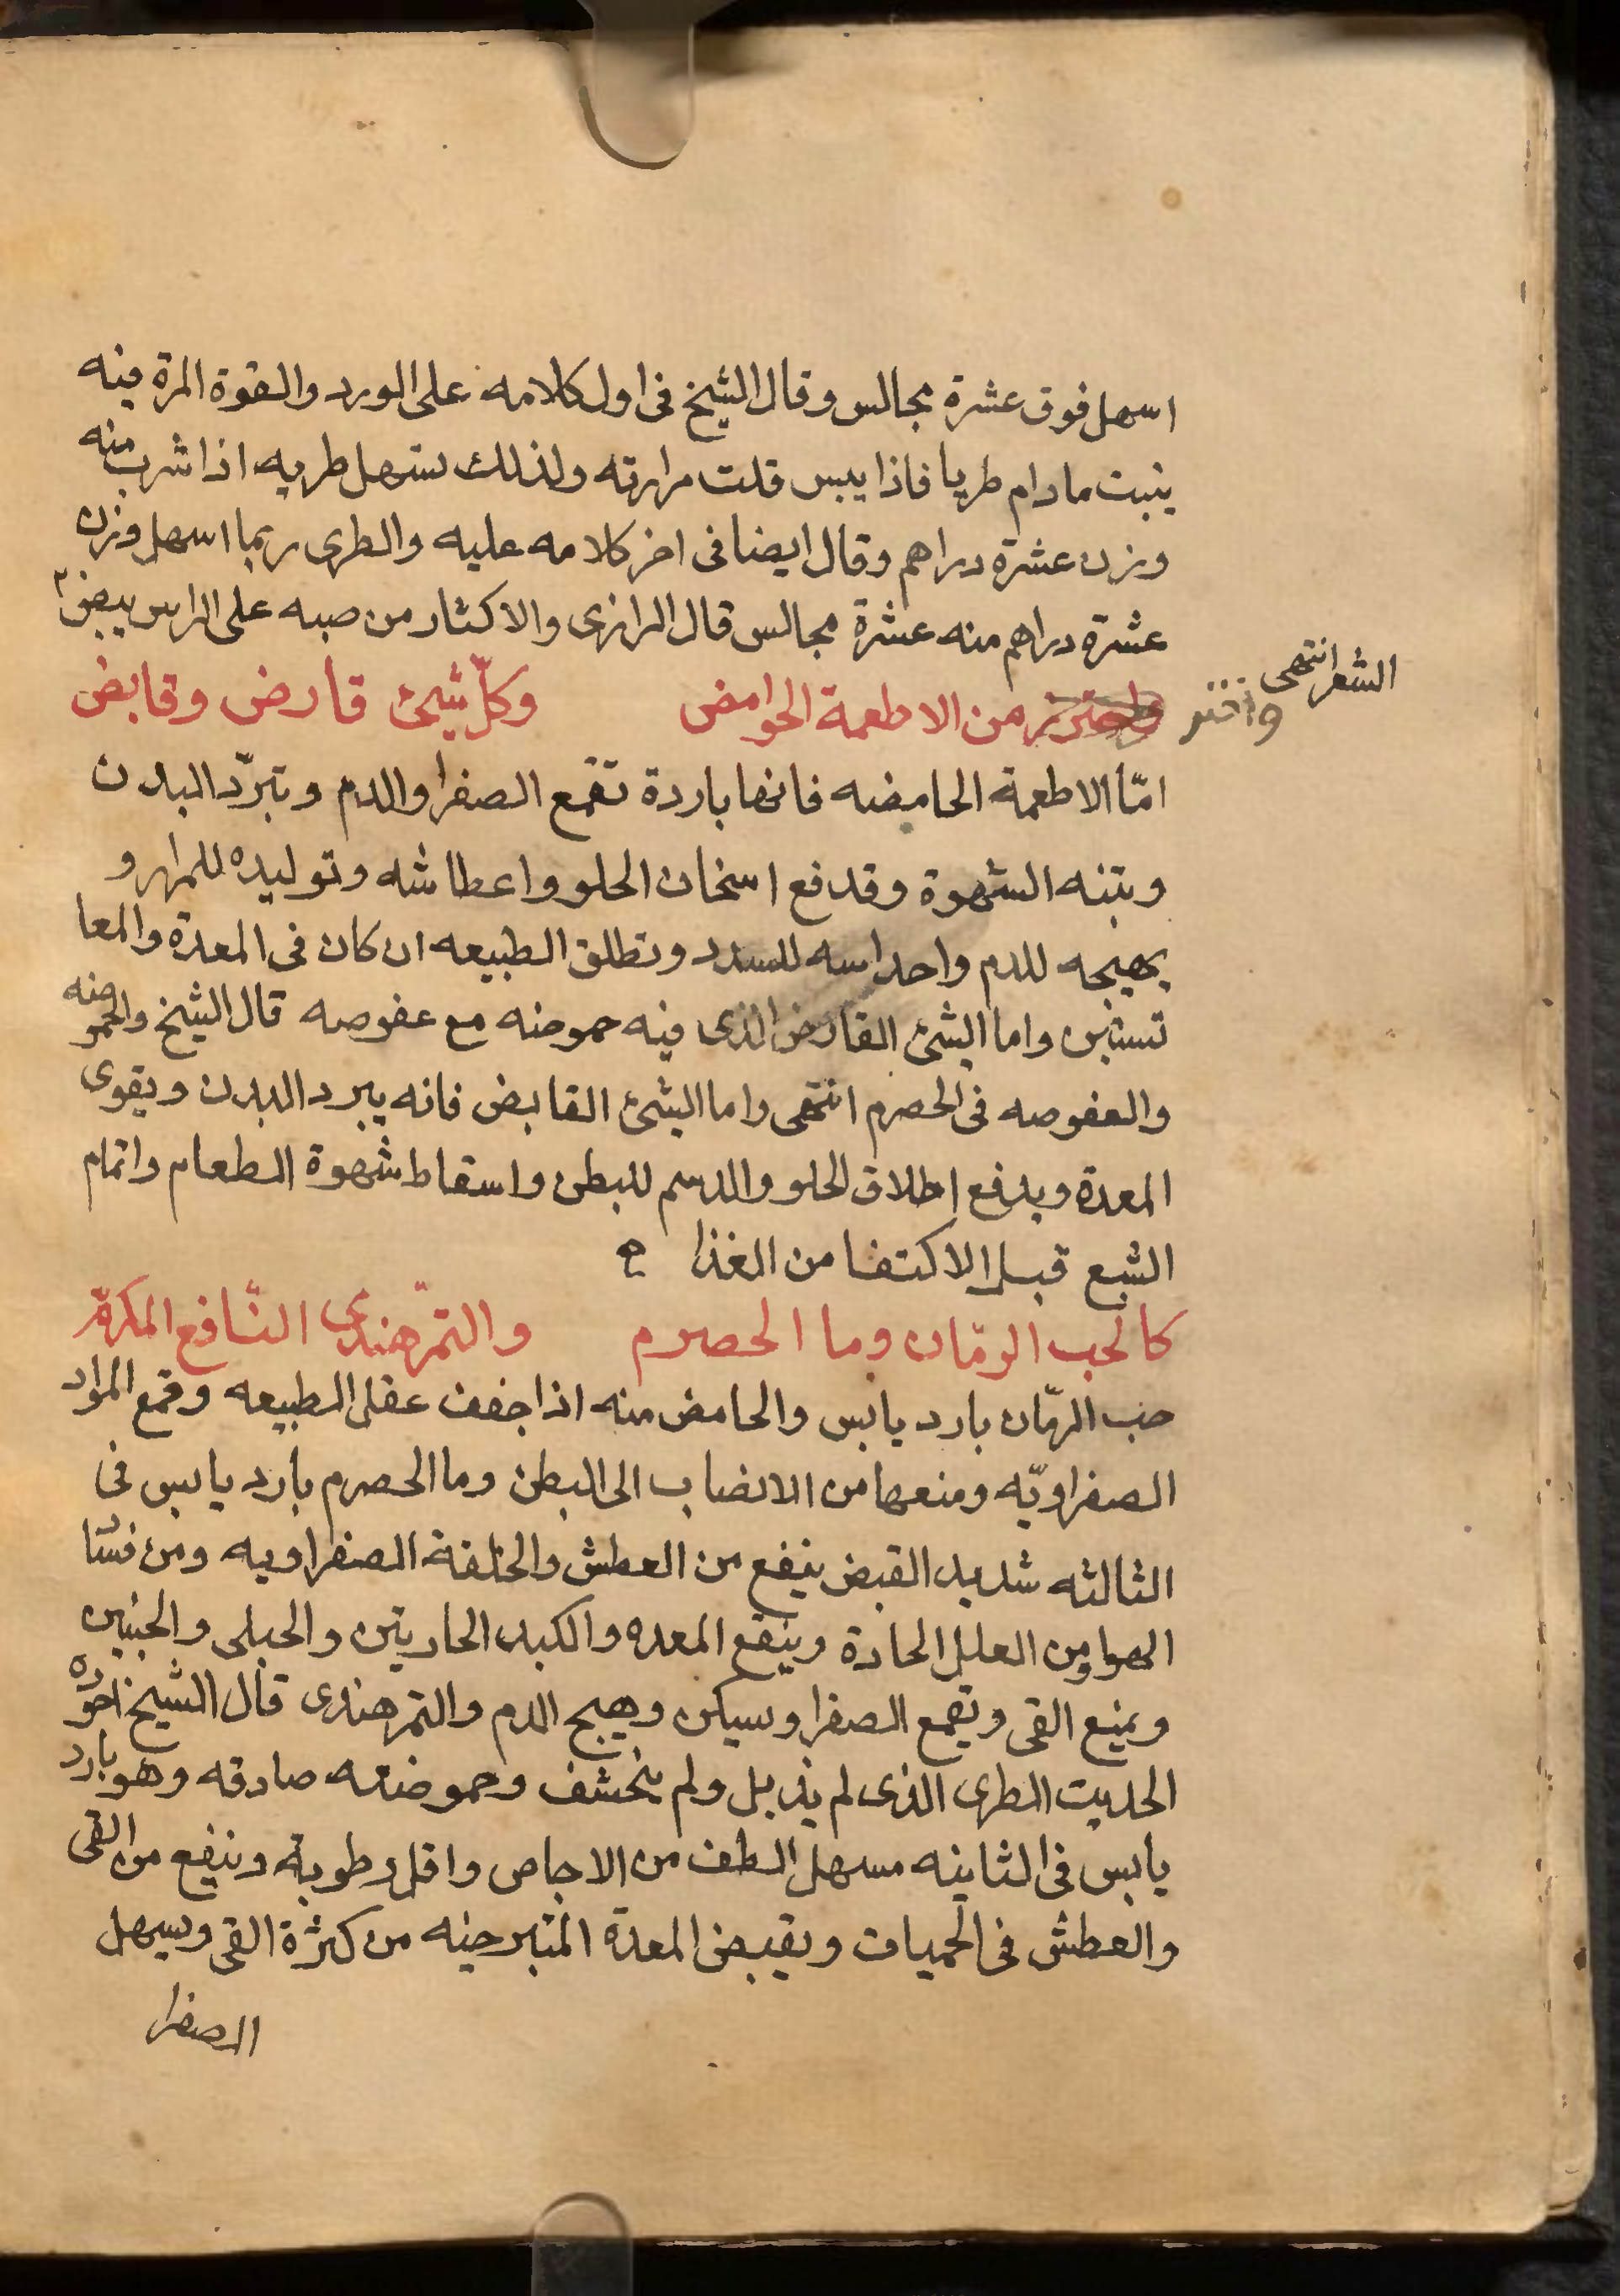 اسهل فوق عشرة مجالس وقال الشيخ فى اول كلامه على الورد والقوة المرة فيه
يثبت مادام طريا فاذا يبس قلت مرارته ولذلك يسهل طريه اذا شرب منه
وزن عشرة دراهم وقال ايضا فى اخر كلامه عليه والطرى ربما اسهل وزن
عشرة دراهم منه عشرة مجالس قال الرازى والاكثار من صبه على الراس يبيض
الشعر انتهى
واختر من الاطعمة الحوامض وكلّ شيئ قارض وقابض
امّا الاطعمة الحامضه فانها باردة تقمع الصفرا والدم وتبرّد البدن
وتنبه الشهوة وقد فع اسخان الحلو واعطاشه وتوليده للمرار و
يهيجه للدم واحداسه للسدد وتطلق الطبيعه ان كان فى المعدة والمعا
واما الشئ القارض الذى فيه حموضه مع عفوصه قال الشيخ والحموضه
والعفوصه فى الحصرم انتهى واما الشئ القابض فانه يبرد البدن ويقوى
المعدة ويدفع اطلاق الحلو والدسم للبطن واسقاط شهوة الطعام واتمام
الشبع قبل الاكتفا من الغذا
كالحب الرمّان وما الحصرم والتمّرهندى النّافع المكرّم
حب الرمّان بارد يابس والحامض منه اذا جفف عقل الطبيعه وقمع المواد
الصفراويّه ومنعها من الانصاب الى البطن وما الحصرم بارد يابس فى
الثالثه شديد القبض ينفع من العطش والخلفة الصفراويه ومن فساد
الهوا ومن العلل الحادة وينفع المعده والكبد الحاريتين والحبلى والجنين
ويمنع القى ويقمع الصفرا ويسكن وهيج الدم والتمرهندى قال الشيخ اجوده
الحديث الطرى الذى لم يذبل ولم ينحشف وحموضته صادقه وهو بارد
يابس فى الثانيه مسهل الطف من الاجاص واقل رطوبة وينفع من القى
والعطش فى الحميات ويقبض المعدة المتبرحيه من كثرة القى ويسهل
الصفرا